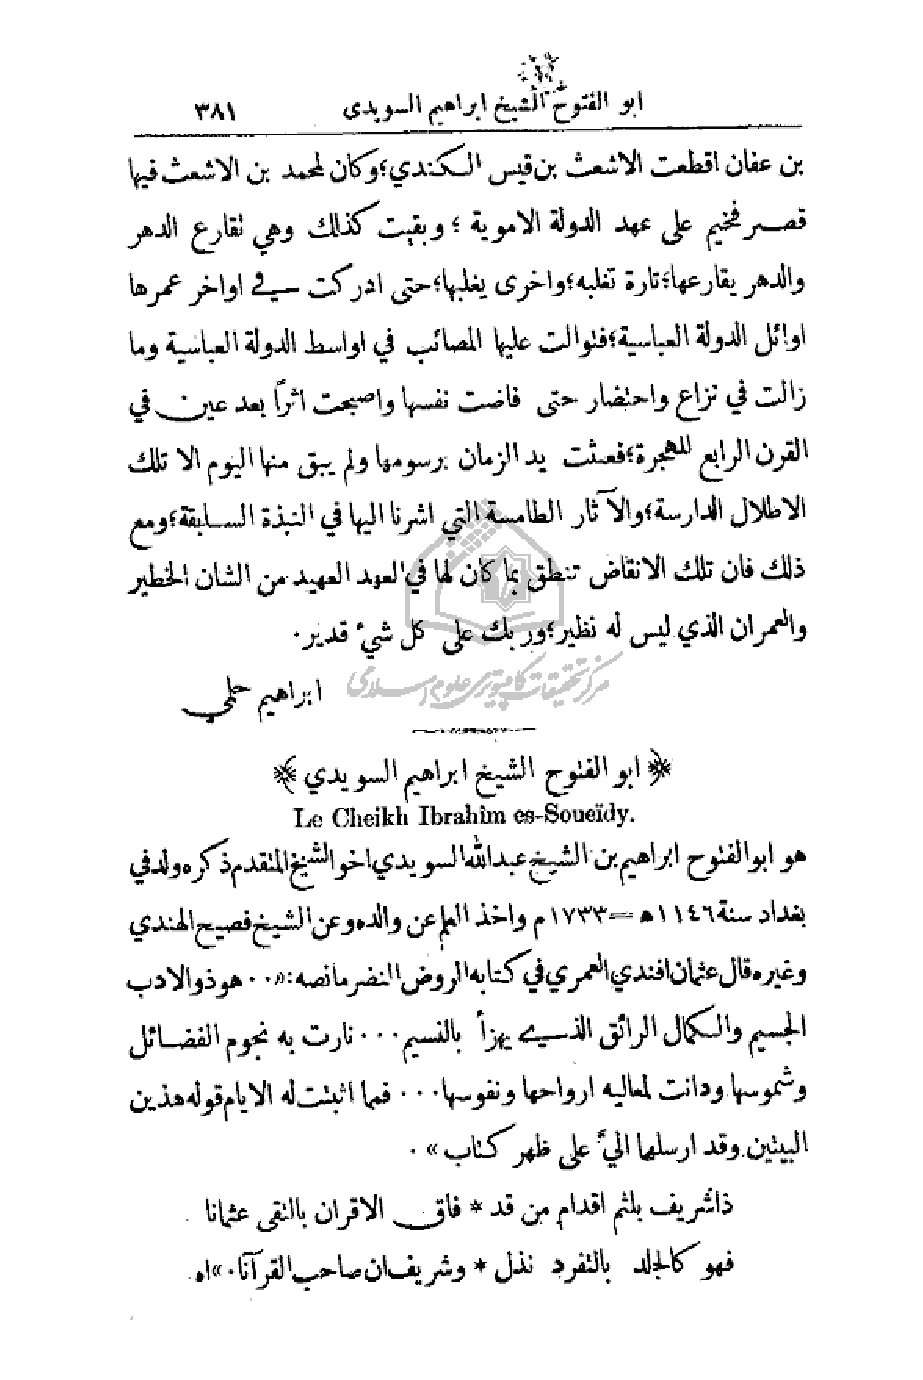 ابو الفتوح الشيخ ابراهيم السويدى ٣٨١
بن عفان اقطعت الاشعث بن قيس الكندي؛ وكان لمحمد بن الاشعث فيها
قصر فخيم على عهد الدولة الاموية ؛ وبقيت كذلك وهي تقارع الدهر
والدهر يقارعها؛ تارة تغلبه؛ واخرى يغلبها؛ حتى ادركت في اواخر عمرها
اوائل الدولة العباسية؛ فتوالت عليها المصائب في اواسط الدولة العباسية وما
زالت في نزاع واحتضار حتى فاضت نفسها واصبحت اثراً بعد عين في
القرن الرابع للهجرة؛ فعثت يد الزمان برسومها ولم يبق منها اليوم الا تلك
الاطلال الدارسة؛ والآثار الطامسة التي اشرنا اليها في النبذة السابقة؛ ومع
ذلك فان تلك الانقاض تنطق بما كان لها في العهد العهيد من الشان الخطير
والعمران الذي ليس له نظير؛ وربك على كل شيءٔ قدير.
مركز تحقيقات كامپيوتری علوم اسلامی
ابراهيم حلمي
﴿ ابو الفتوح الشيخ ابراهيم السويدي ﴾
Le Cheikh Ibrahim es-Soueïdy.
هو ابو الفتوح ابراهيم بن الشيخ عبدالله السويدي اخو الشيخ المتقدم ذكره ولد في
بغداد سنة ١١٤٦ه = ١٧٣٣م واخذ العلم عن والده وعن الشيخ فصيح الهندي
وغيره قال عثمان افندي العمري في كتابه الروض النضر ما نصه: «.. هو ذو الادب
الجسيم والكمال الرائق الذي يهزأ بالنسيم... نارت به نجوم الفضائل
وشموسها ودانت لمعاليه ارواحها ونفوسها... فمما اثبتت له الايام قوله هذين
البيتين وقد ارسلهما اليّ على ظهر كتاب» .
ذا شريف بلثم اقدام من قد * فاق الاقران بالتقى عثمانا
فهو كالجلد بالتفرد نذل * وشريف ان صاحب القرآنا.» اه.